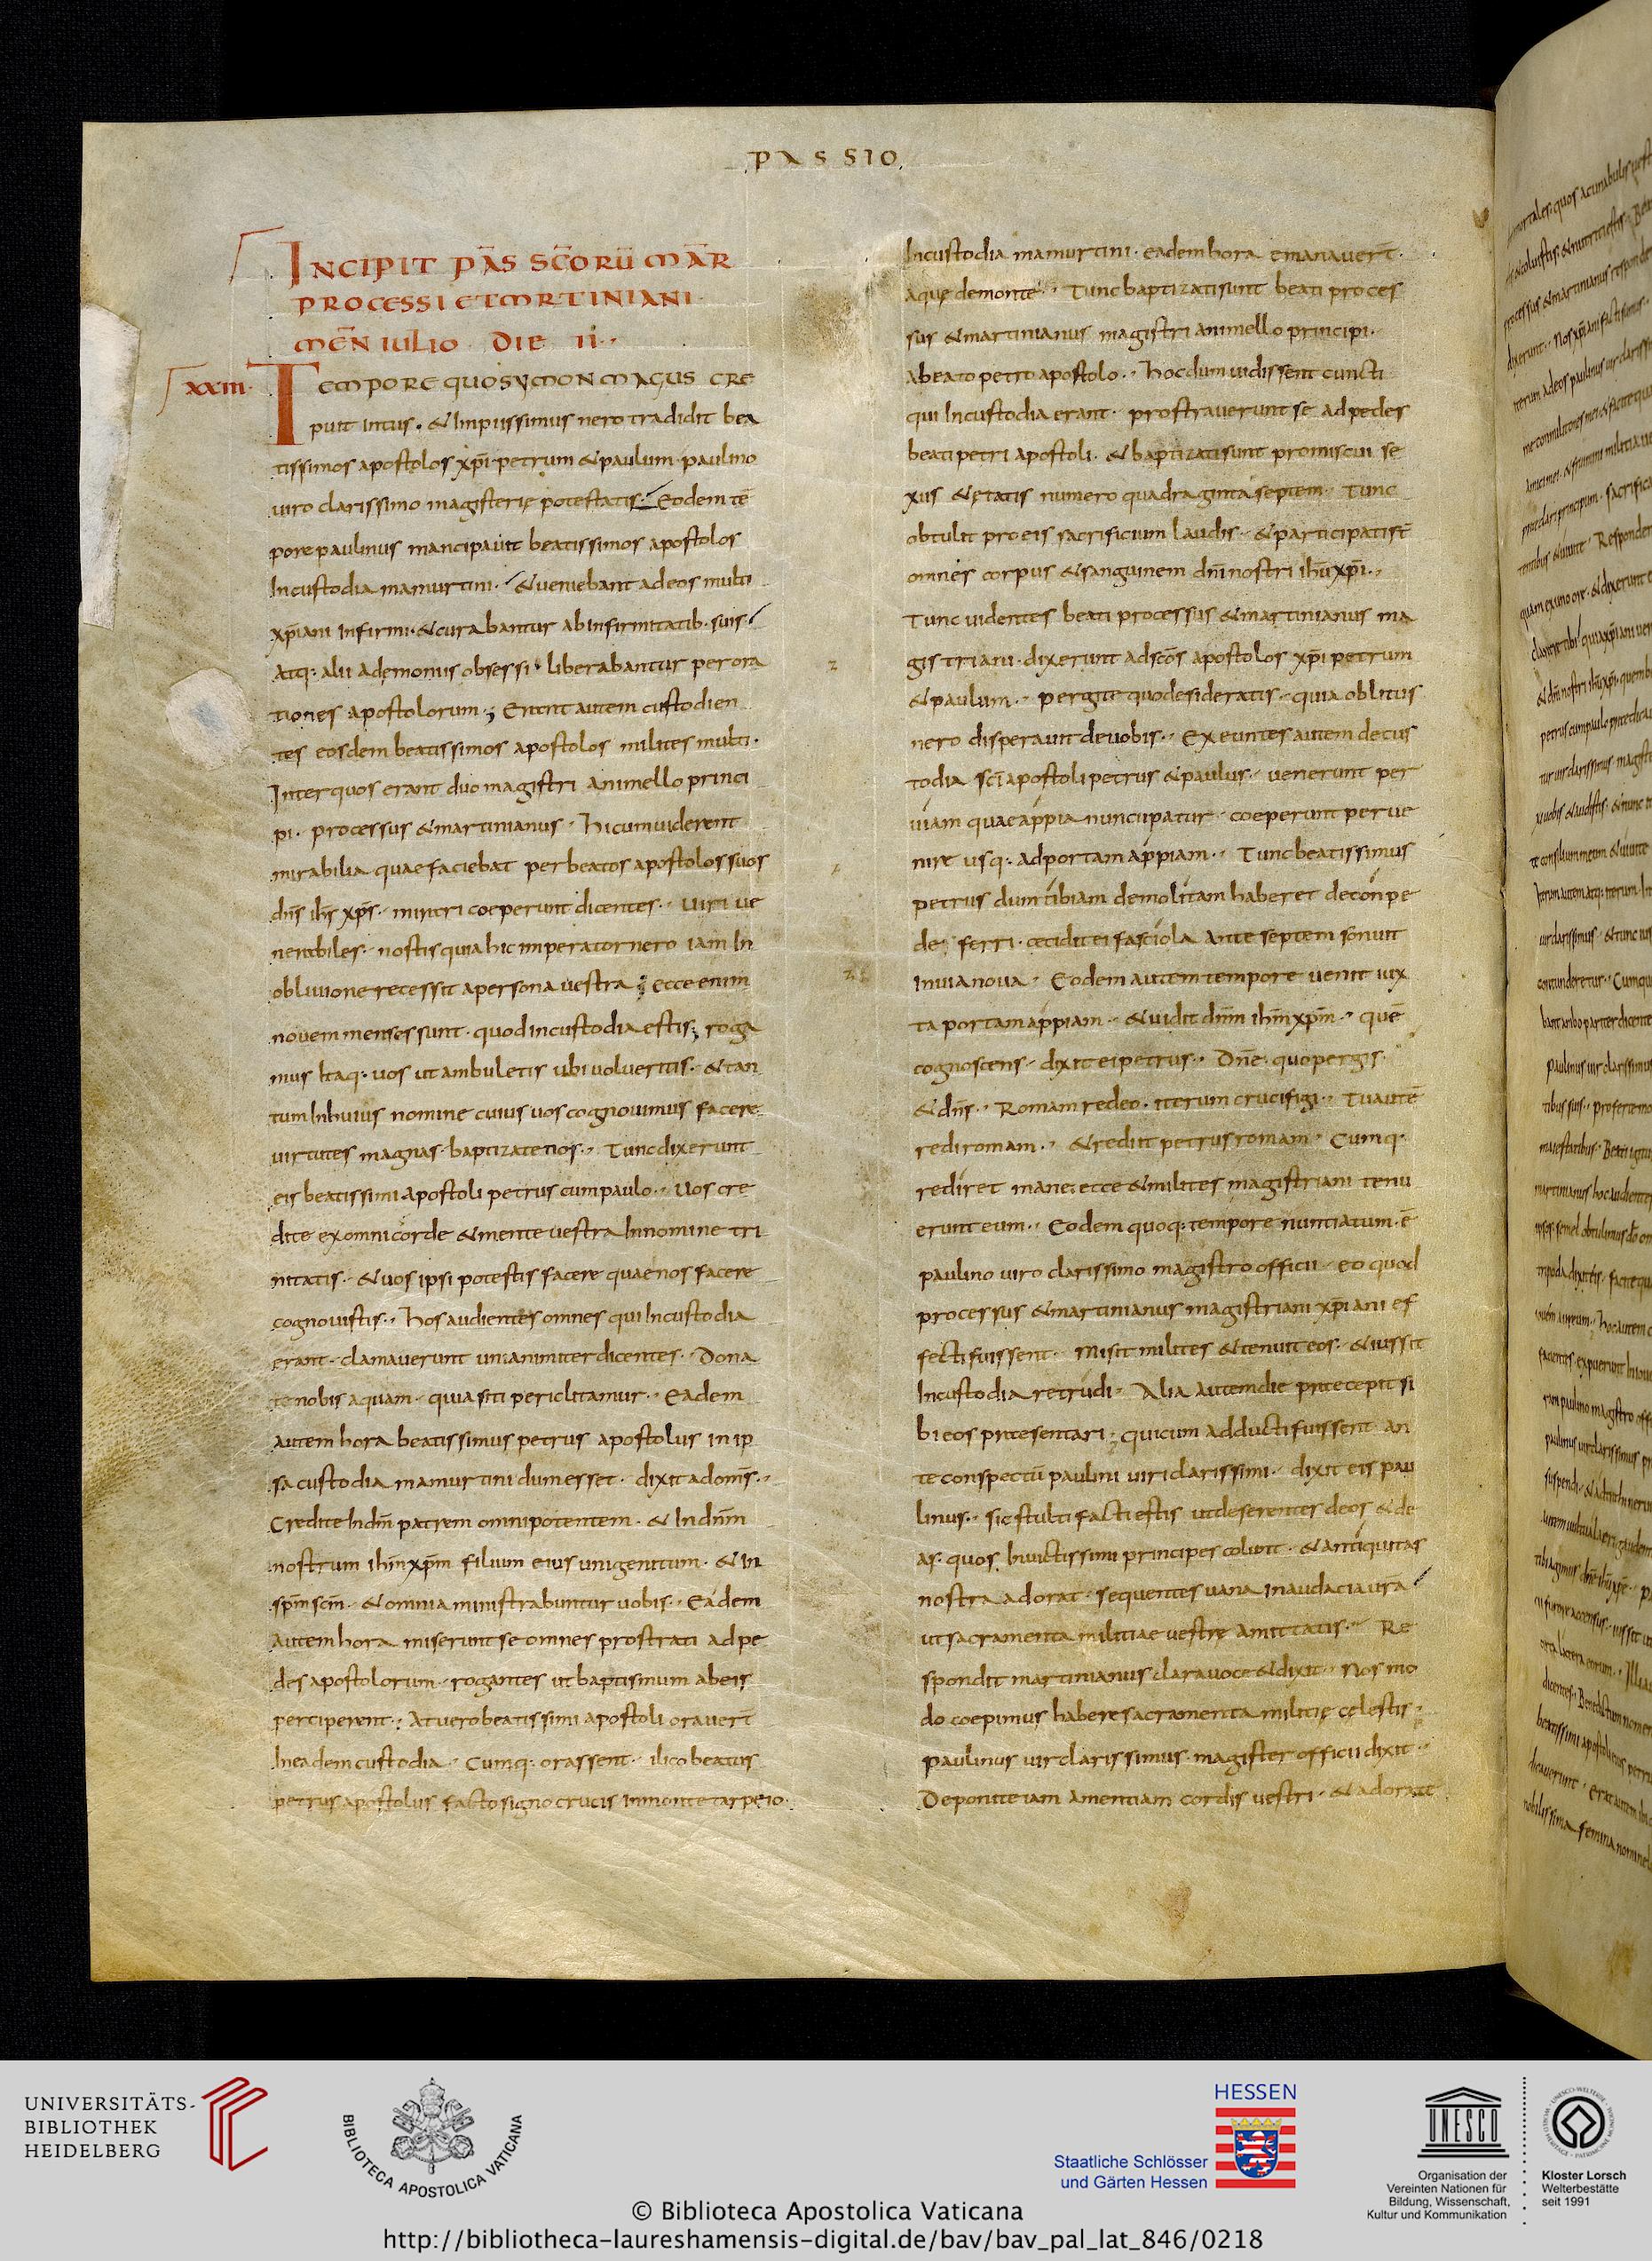 PASSIO
INCIPIT PĀS SC̄ORŪ MĀR
PROCESSI ET MRTINIANI
MEN̄ IULIO DIE II
XXIII
TEMPORE QUO SYMON MAGUS CRE
puit intus. & Impiissimus nero tradidit bea
tissimos apostolos xp̄i petrum & paulum paulino
uiro clarissimo magisterię potestatis. Eodem tē
pore paulinus mancipauit beatissimos apostolos
Incustodia mamurtini. & ueniebant adeos multi
xp̄iani infirmi. & curabantur abinfirmitatib. suis
Atq: alii ademonus obsessi. liberabantur perora
tiones apostolorum; Erant autem custodien
tes eosdem beatissimos apostolos milites multi.
Inter quos erant duo magistri animello princi
pi. processus & martinianus. hi cum uiderent
mirabilia quae faciebat per beatos apostolos suos
dn̄s ih̄s xp̄s. mirari coeperunt dicentes. Uiri ue
nerabiles. nostis quia hic imperator nero iam In
obliuione recessit apersona uestra; Ecce enim
nouem menses sunt. quod incustodia estis; roga
mus Itaq: uos ut ambuletis ubi uolueritis. & tan
tum Inhuius nomine cuius uos cognouimus facere
uirtutes magnas. baptizate nos. Tunc dixerunt
eis beatissimi apostoli petrus cum paulo. Uos cre
dite ex omni corde & mente uestra Innomine tri
nitatis. & uos ipsi potestis facere quae nos facere
cognouistis. Hos audientes omnes qui Incustodia
erant. clamauerunt unianimiter dicentes. Dona
te nobis aquam. quia siti periclitamur. Eadem
autem hora beatissimus petrus apostolus in ip
sa custodia mamurtini dum esset. dixit ad omīs.
Credite Indm̄ patrem omnipotentem. & In dn̄m
nostrum ih̄m xp̄m filium eius unigenitum. & in
sp̄m sc̄m. & omnia ministrabuntur uobis. Eadem
autem hora miserunt se omnes prostrati ad pe
des apostolorum. rogantes ut baptismum abeis
perciperent. At uero beatissimi apostoli orauert̄
Ineadem custodia. Cumq: orassent. ilico beatus
petrus apostolus facto signo crucis inmonte tarpeio.
Incustodia mamurtini. eadem hora emanauert̄.
aquę demonte. Tunc baptizati sunt beati proces
sus & martinianus magistri animello principi.
abeato petro apostolo. Hoc dum uidissent cuncti
qui Incustodia erant. prostrauerunt se ad pedes
beati petri apostoli. & baptizati sunt promiscui se
xus & ętatis numero quadraginta septem. Tunc
obtulit pro eis sacrificium laudis. & participatist̄
omnes corpus & sanguinem dn̄i nostri ih̄u xp̄i.
Tunc uidentes beati processus & martinianus ma
gistriani. dixerunt adsc̄os apostolos xp̄i petrum
& paulum. pergite quo desideratis. quia oblitus
nero disperauit deuobis. Exeuntes autem decus
todia sc̄i apostoli petrus & paulus. uenerunt per
uiam quae appia nuncupatur. coeperunt perue
nire usq: ad portam appiam. Tunc beatissimus
petrus dum tibiam demolitam haberet deconpe
de ferri. cecidit ei fasciola ante septem sonuit
Inuia noua. Eodem autem tempore uenit iux
ta portam appiam. & uidit dn̄m ih̄m xp̄m. quē
cognoscens. dixit ei petrus. Dn̄e. quo pergis.
& dn̄s. Romam redeo. iterum crucifigi. Tu autē
redi romam. & rediit petrus romam. Cumq:
rediret mane. ecce & milites magistriani tenu
erunt eum. Eodem quoq: tempore nuntiatum. ē
paulino uiro clarissimo magistro officii. eo quod
processus & martinianus magistriani xp̄iani ef
fecti fuissent. Misit milites & tenuit eos. & iussit
Incustodia retrudi. Alia autem die praecepit si
bi eos praesentari; qui cum adducti fuissent an
te conspectū paulini uiri clarissimi. dixit eis pau
linus. sic stulti facti estis ut deserentes deos & de
as. quos Inuictissimi principes colunt. & antiquitas
nostra adorat. sequentes uana inaudacia ur̄a
ut sacramenta militiae uestrę amittatis. Re
spondit martinianus clara uoce & dixit. Nos mo
do coepimus habere sacramenta militię celestis.
Paulinus uir clarissimus. magister officii dixit.
Deponite iam amentiam cordis uestri. & adorate
UNIVERSITÄTS-
BIBLIOTHEK
HEIDELBERG
BIBLIOTECA APOSTOLICA VATICANA
HESSEN
Staatliche Schlösser
und Gärten Hessen
UNESCO
Organisation der
Vereinten Nationen für
Bildung, Wissenschaft,
Kultur und Kommunikation
Kloster Lorsch
Welterbestätte
seit 1991
© Biblioteca Apostolica Vaticana
http://bibliotheca-laureshamensis-digital.de/bav/bav_pal_lat_846/0218